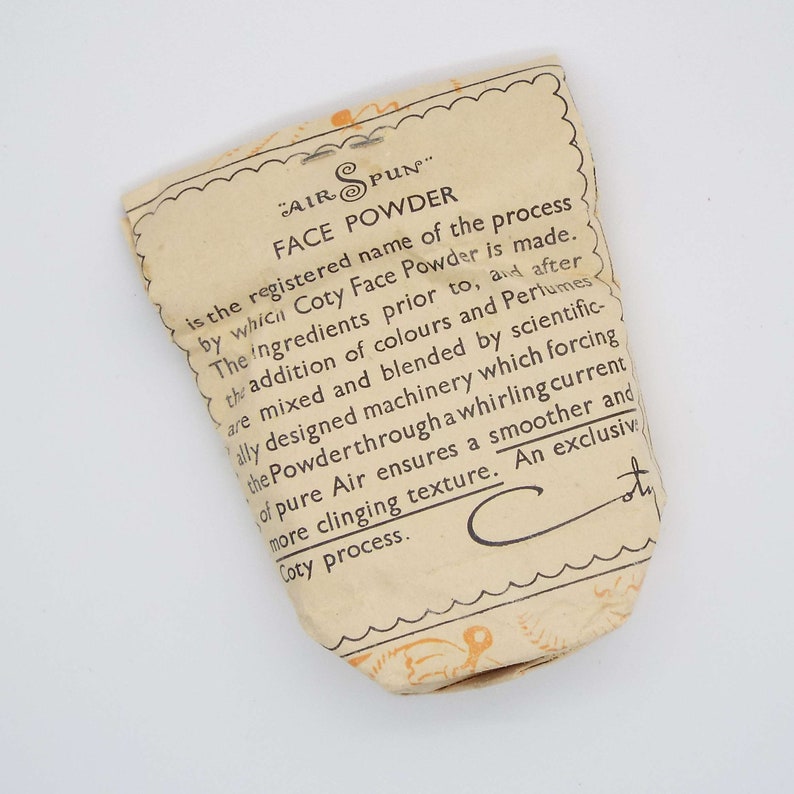 "AIR SPUN"
FACE POWDER
is the registered name of the process
by which Coty Face Powder is made.
The ingredients prior to, and after
the addition of colours and Perfumes
are mixed and blended by scientific-
ally designed machinery which forcing
the Powder through a whirling current
of pure Air ensures a smoother and
more clinging texture. An exclusive
Coty process.
Coty